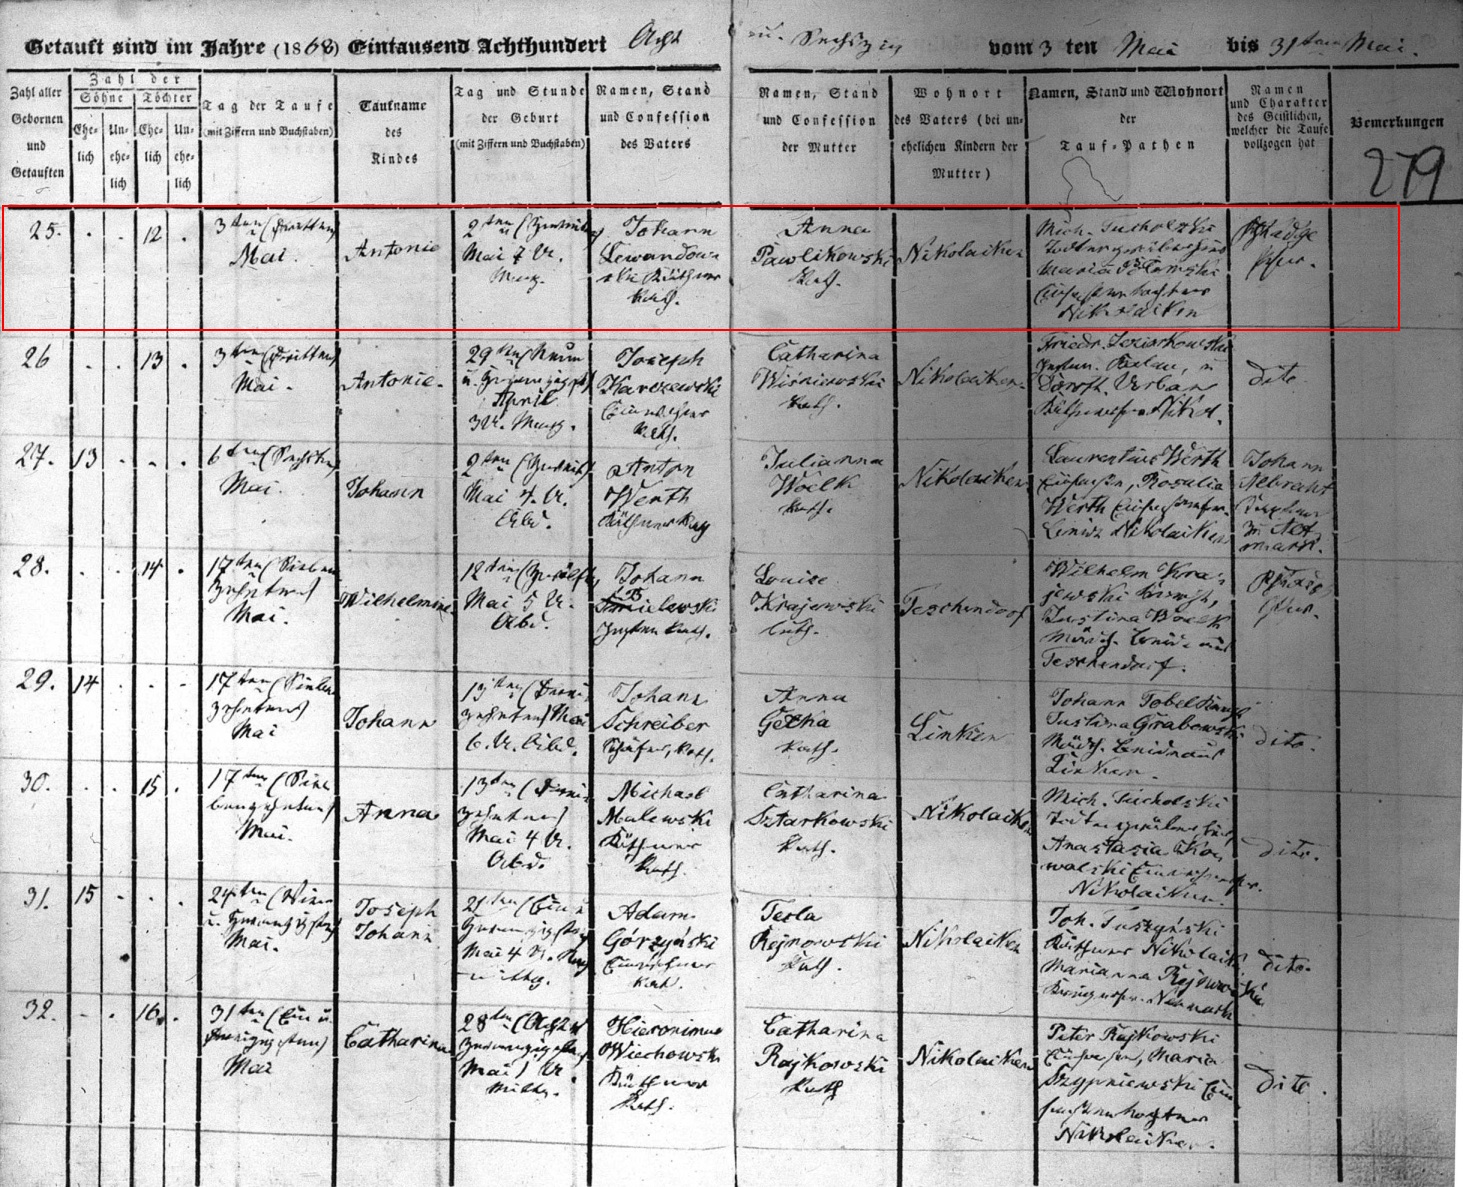 Getauft sind im Jahre (1868) Eintausend Achthundert Acht u. Sechszig vom 3 ten Mai bis 31ten Mai.
Zahl aller Gebornen und Getauften
Zahl der
Söhne Töchter
Ehe-lich Un-ehe-lich Ehe-lich Un-ehe-lich
Tag der Taufe (mit Ziffern und Buchstaben)
Taufname des Kindes
Tag und Stunde der Geburt (mit Ziffern und Buchstaben)
Namen, Stand und Confession des Vaters
Namen, Stand und Confession der Mutter
Wohnort des Vaters (bei un-ehelichen Kindern der Mutter)
Namen, Stand und Wohnort der Tauf-Pathen
Namen und Charakter des Geistlichen, welcher die Taufe vollzogen hat
Bemerkungen
279
25. . . 12 .
3ten (Dritten)
Mai.
Antonie
2ten (Zweiten)
Mai 4 U.
Morg.
Johann
Lewandow-
ski Käthner
Kath.
Anna
Pawlikowski
Kath.
Nikolaiken
Mich. Sucholski
Maria
Nikolaiken
Pfarr.
26 . . 13 .
3ten (Dritten)
Mai.
Antonie.
29ten (Neun
u. Zwanzigsten)
April
3 U. Morg.
Joseph
Karczewski
Einwohner
Kath.
Catharina
Wiśniewski
Kath.
Nikolaiken.
Friedr.
Doroth. Urban
Nikol.
dito
27. 13 . . .
6ten (Sechsten)
Mai.
Johann
2ten (Zweiten)
Mai 4. U.
Abd.
Anton
Werth
Käthner
Julianna
Woelk
Kath.
Nikolaiken
Laurentius Werth
Rosalia
Werth
Nikolaiken
Johann
Albrecht
Neu-
mark.
28. . . 14 .
17ten (Sieben
zehnten)
Mai.
Wilhelmine
12ten (Zwölften)
Mai 5 U.
Abd.
Johann
Kath.
Louise
Krajewski
Kath.
Teschendorf
Wilhelm Kra-
jewski Knecht,
Justina Woelk
Mädch. beide aus
Teschendorf.
Pfarr.
29. 14 . . -
17ten (Sieben
zehnten)
Mai
Johann
13ten (Drei-
zehnten) Mai
6. U. Abd.
Johann
Schreiber
Schäfer, Kath.
Anna
Kath.
Linken
Johann Tobel
Justina Grabowski
Mädch. beide aus
Linken.
dito.
30. . . 15 .
17ten (Sieben
zehnten)
Mai.
Anna
13ten (Drei-
zehnten)
Mai 4 U.
Abd.
Michael
Malewski
Käthner
Kath.
Catharina
Sztarkowski
Kath.
Nikolaiken
Mich. Sucholski
Anastasia Ko-
walski
Nikolaiken.
dito.
31. 15 . . .
24ten (Vier
u. Zwanzigsten)
Mai.
Joseph
Johann
21ten (Ein u.
Zwanzigsten)
Mai 4 U. Nach-
mittg.
Adam
Górzyński
Einwohner
Kath.
Tecla
Rejnowski
Kath.
Nikolaiken
Joh. Tuszyński
Käthner Nikolaiken
Marianna
Neumark
dito.
32. . . 16. .
31ten (Ein u.
Dreizigsten)
Mai
Catharina
28ten (Acht u.
Zwanzigsten)
Mai 1 U.
Mittg.
Hieronimus
Wiechowski
Käthner
Kath.
Catharina
Rajkowski
Kath
Nikolaiken
Peter Rajkowski
Maria
Szypniewski
Nikolaiken.
dito.